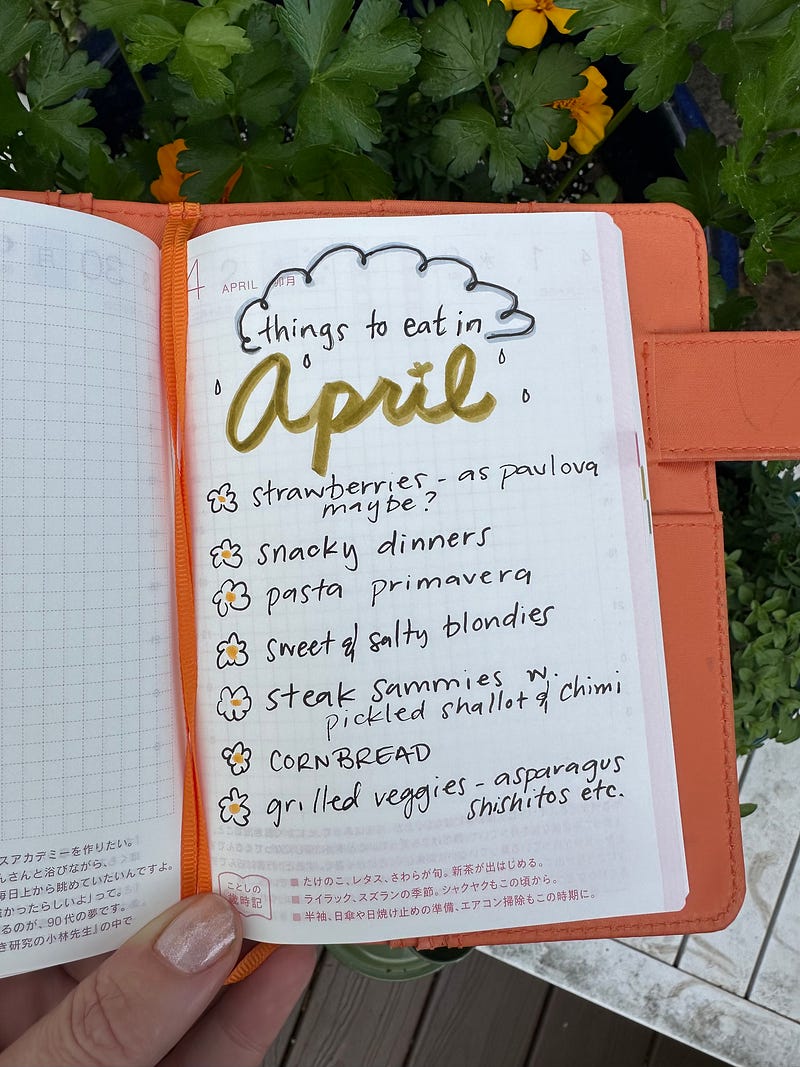 スアカデミーを作りたい。
んさんと浴びながら、
毎日上から眺めていたいんですよ。
強かったらしいよ」って。
るのが、90代の夢です。
き研究の小林先生』の中で
4 APRIL 卯月
things to eat in
April
strawberries - as pavlova
maybe?
snacky dinners
pasta primavera
sweet & salty blondies
steak sammies w.
pickled shallot & chimi
CORNBREAD
grilled veggies - asparagus
shishitos etc.
ことしの
歳時記
■ たけのこ、レタス、さわらが旬。新茶が出はじめる。
■ ライラック、スズランの季節。シャクヤクもこの頃から。
■ 半袖、日傘や日焼け止めの準備、エアコン掃除もこの時期に。